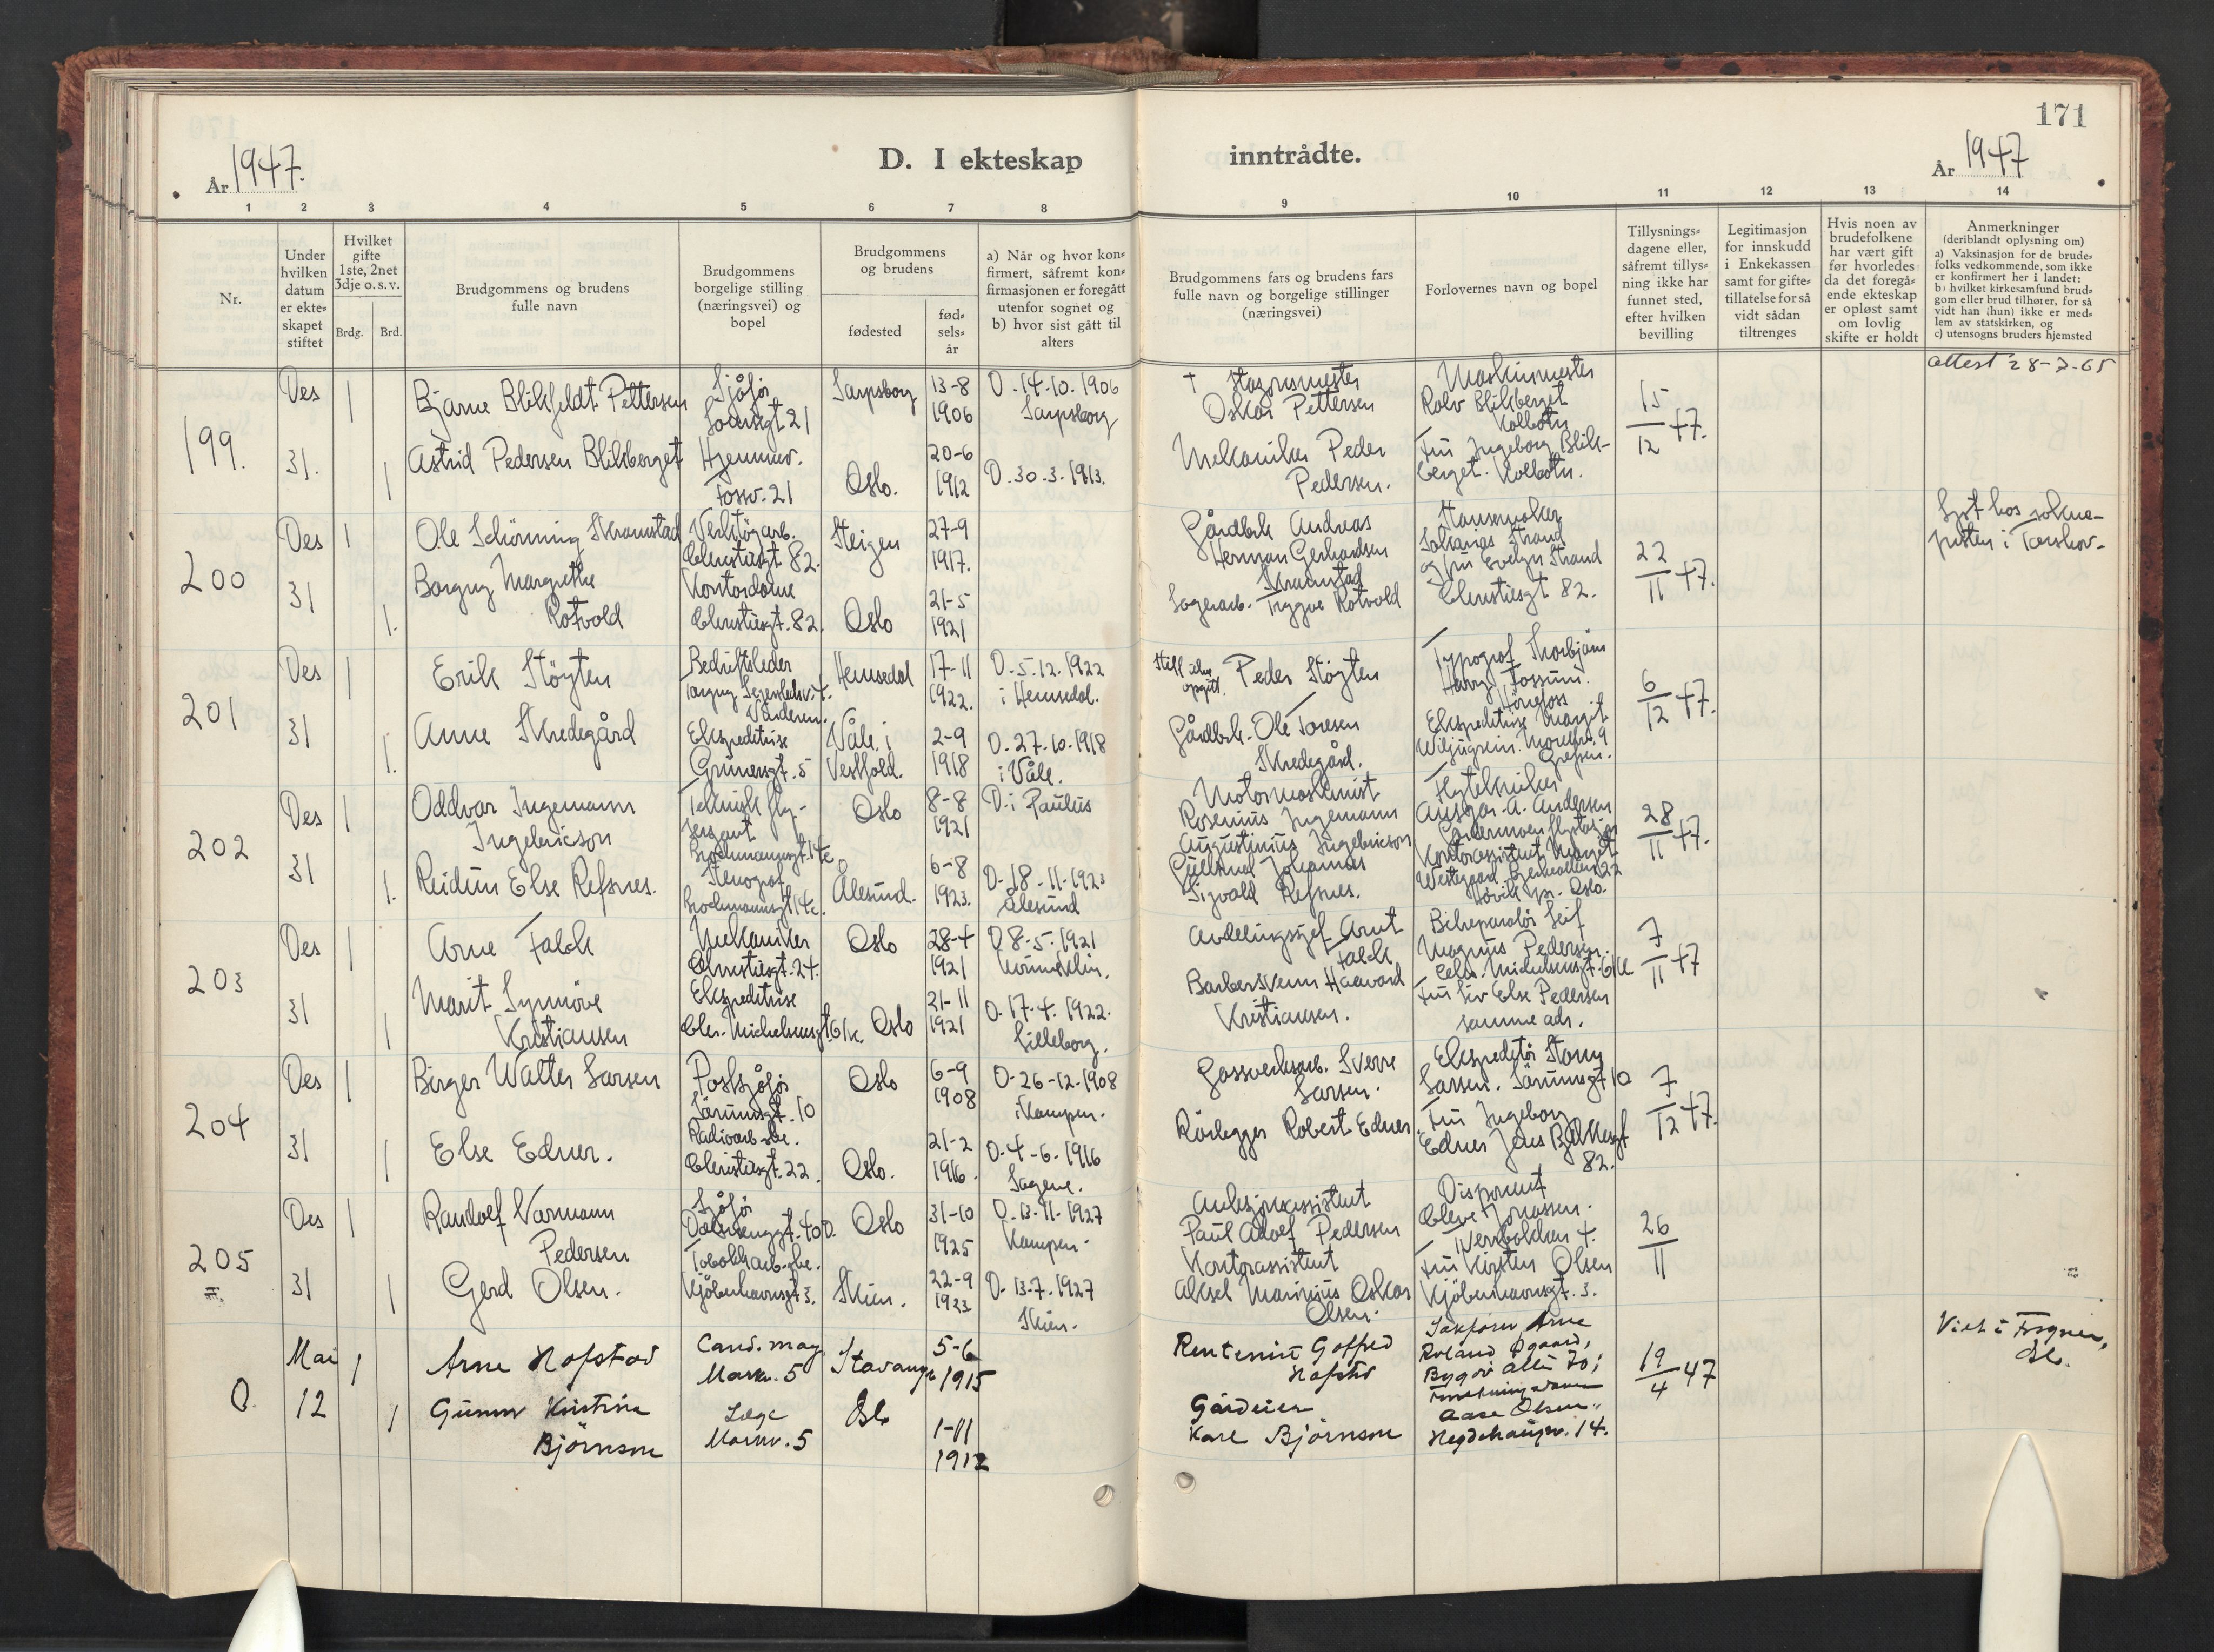 171
År 1947.
D. I ekteskap inntrådte.
År 1947
1 2 3 4 5 6 7 8 9 10 11 12 13 14
Nr.
Under
hvilken
datum
er ekte-
skapet
stiftet
Hvilket
gifte
1ste, 2net
3dje o. s. v.
Brdg. Brd.
Brudgommens og brudens
fulle navn
Brudgommens
borgelige stilling
(næringsvei) og
bopel
Brudgommens
og brudens
fødested
fød-
sels-
år
a) Når og hvor kon-
firmert, såfremt kon-
firmasjonen er foregått
utenfor sognet og
b) hvor sist gått til
alters
Brudgommens fars og brudens fars
fulle navn og borgelige stillinger
(næringsvei)
Forlovernes navn og bopel
Tillysnings-
dagene eller,
såfremt tillys-
ning ikke har
funnet sted,
efter hvilken
bevilling
Legitimasjon
for innskudd
i Enkekassen
samt for gifte-
tillatelse for så
vidt sådan
tiltrenges
Hvis noen av
brudefolkene
har vært gift
før hvorledes
da det foregå-
ende ekteskap
er opløst samt
om lovlig
skifte er holdt
Anmerkninger
(deriblandt oplysning om)
a) Vaksinasjon for de brude-
folks vedkommende, som ikke
er konfirmert her i landet:
b) hvilket kirkesamfund brud-
gom eller brud tilhører, for så
vidt han (hun) ikke er med-
lem av statskirken, og
c) utensogns bruders hjemsted
199.
Des 1
31. 1
Bjarne Blikfeldt Pettersen
Astrid Pedersen Blikberget
Sjåför
21
Hjemmev.
Fossv. 21
Sarpsborg
Oslo.
13-8
1906
20-6
1912
D. 14-10. 1906
Sarpsborg
D. 30. 3. 1913.
+
Oskar Pettersen
Mekaniker Peder
Pedersen.
Maskinmester
Rolv Blikberget
Kolbotn
Fru Ingeborg Blik-
berget. Kolbotn.
15
12 47.
attest 28-7-65
200
Des 1
31 1.
Ole Schönning Skramstad
Borgny Margrethe
Rotvold
Verktöyarb.
Chrstiesgt 82.
Kontordame
Chrstiesgt. 82.
Steigen
Oslo
27-9
1917.
21-5
1921
Gårdbr. Andreas
Herman Gerhardsen
Skramstad
Lagerarb. Trygve Rotvold
Strand
og fru Evelyn Strand
Chrstiesgt 82.
22
11 47.
Lyst hos sokne-
presten i Torshov.
201
Des 1
31 1.
Erik Stöyten
Anne Skredegård
Bedriftsleder
Vinderen.
Ekspeditrise
Grünersgt. 5
Hemsedal
Våle i
Vestfold.
17-11
1922.
2-9
1918
D. 5. 12. 1922
i Hemsedal.
D. 27. 10. 1918
i Våle.
Still. ikke
opgitt. Peder Stöyten
Gårdbr. Ole Toresen
Skredegård.
Typograf Thorbjörn
Harry Fossum.
Hönefoss
Ekspeditrise Margit
Grefsen.
6
12 47.
202
Des 1
31 1.
Oddvar Ingemann
Ingebricson
Reidun Else Refsnes.
Teknisk fly-
sersjant
Brochmannsgt. 14c
Stenograf
Brochmannsgt 14c.
Oslo
Ålesund.
8-8
1921
6-8
1923.
D. i Paulus
D. 18-11-1923
Ålesund
Motormaskinist
Rosenius Ingemann
Augustinius Ingebricson
Johannes
Sigvald Refsnes.
Flytekniker
Ansgar. A. Andersen
Gardermoen flystasjon
Kontorassistent Margit
Westgaard
Hövik pr. Oslo.
28
11 47.
203
Des 1
31 1
Arne Falch
Marit Synnöve
Kristiansen
Mekaniker
Chrstiesgt. 24.
Ekspeditrise
Chr. Michelsensgt. 61c.
Oslo
Oslo
28-4
1921
21-11
1921
D 8-5. 1921
D. 17. 4. 1922.
Lilleborg.
Avdelingssjef Arnt
Falch
Barbersvenn Haavard
Kristiansen.
Bilreparatör Leif
Magnus Pedersen.
Chr. Michelsensgt. 61c
Fru Liv Else Pedersen
samme adr.
7
11 47
204
Des 1
31 1
Birger Walter Larsen
Else Edner.
Postsjåför
Sörumsgt. 10
Radioarb.ske.
Chrstiesgt. 22.
Oslo
Oslo.
6-9
1908
21-2
1916.
D. 26-12-1908
i Kampen.
D. 4-6. 1916
Sagene.
Gassverksarb. Sverre
Larsen.
Rörlegger Robert Edner.
Ekspeditör
Larsen. Sörumsgt 10
Fru Ingeborg
Edner Jens Bjelkesgt
82.
7
12 47.
205
Des 1
31 1
Randolf Varmann
Pedersen
Gerd Olsen.
Sjåför
Dælenenggt. 40 D.
Tobakkarb.ske.
Kjöbenhavnsgt 3.
Oslo
Skien.
31-10
1925
22-9
1923
D. 13. 11. 1927
Kampen.
D. 13-7. 1927
Skien.
Auksjonsassistent
Paul Adolf Pedersen
Kontorassistent
Aksel Marinius Oskar
Olsen.
Disponent
Jonassen.
4.
Fru Kirsten Olsen
Kjöbenhavnsgt. 3.
26
11
0.
Mai 1
12 1
Arne Hofstad
Gunvor Kristine
Björnson
Cand. mag
Markv. 5
Læge
Markv. 5
Stavanger
Oslo
5-6
1915
1-11
1912
Rentenist Gotfred
Hofstad
Gårdeier
Kare Björnson
Sakförer Arne
Roland Ögaard,
Bygdö allé 70;
Forretningsdame
Aase Olsen,
Hegdehaugsv. 14.
19
4 47
Viet i Frogner,
Oslo.